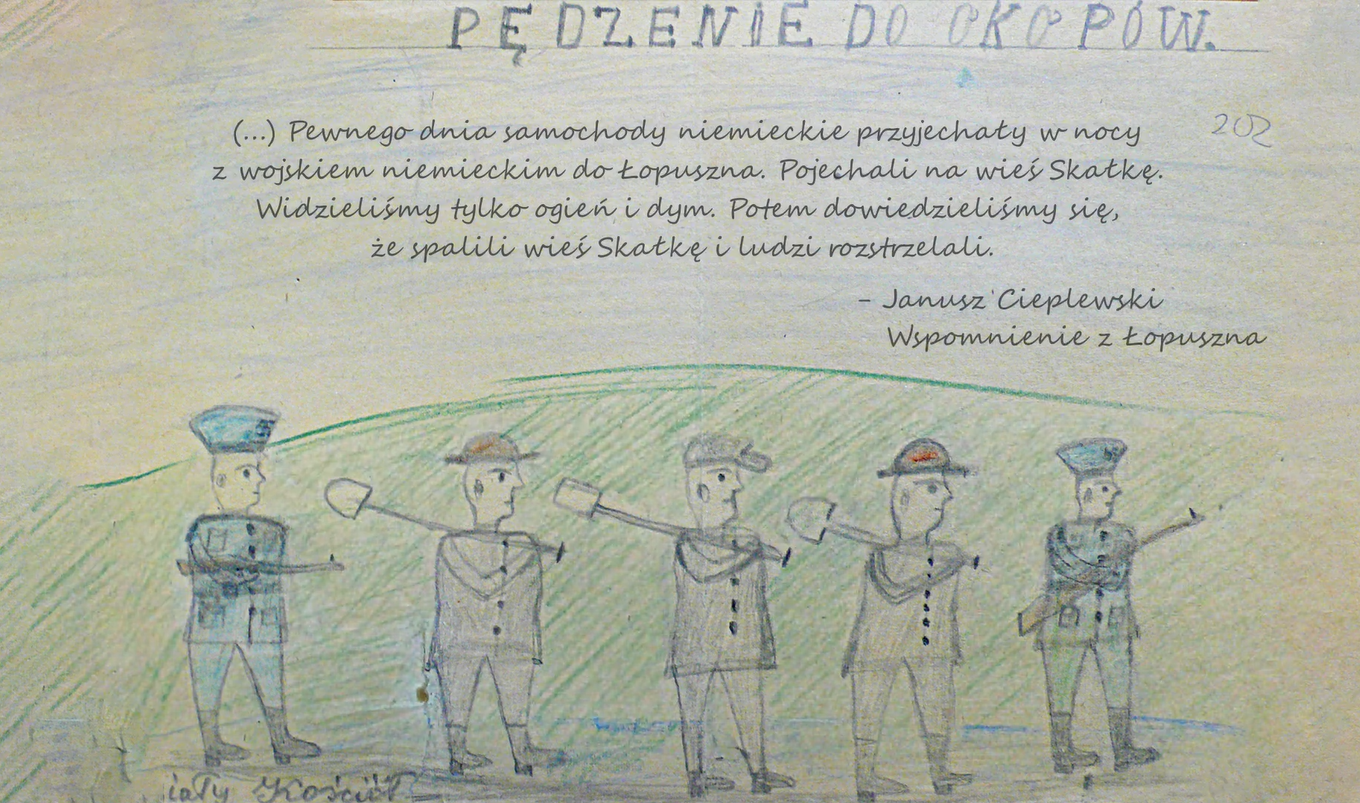 PĘDZENIE DO OKOPÓW.
(...) Pewnego dnia samochody niemieckie przyjechały w nocy
202
z wojskiem niemieckim do Łopuszna. Pojechali na wieś Skałkę.
Widzieliśmy tylko ogień i dym. Potem dowiedzieliśmy się,
że spalili wieś Skałkę i ludzi rozstrzelali.
- Janusz Cieplewski
Wspomnienie z Łopuszna
iały Kościół